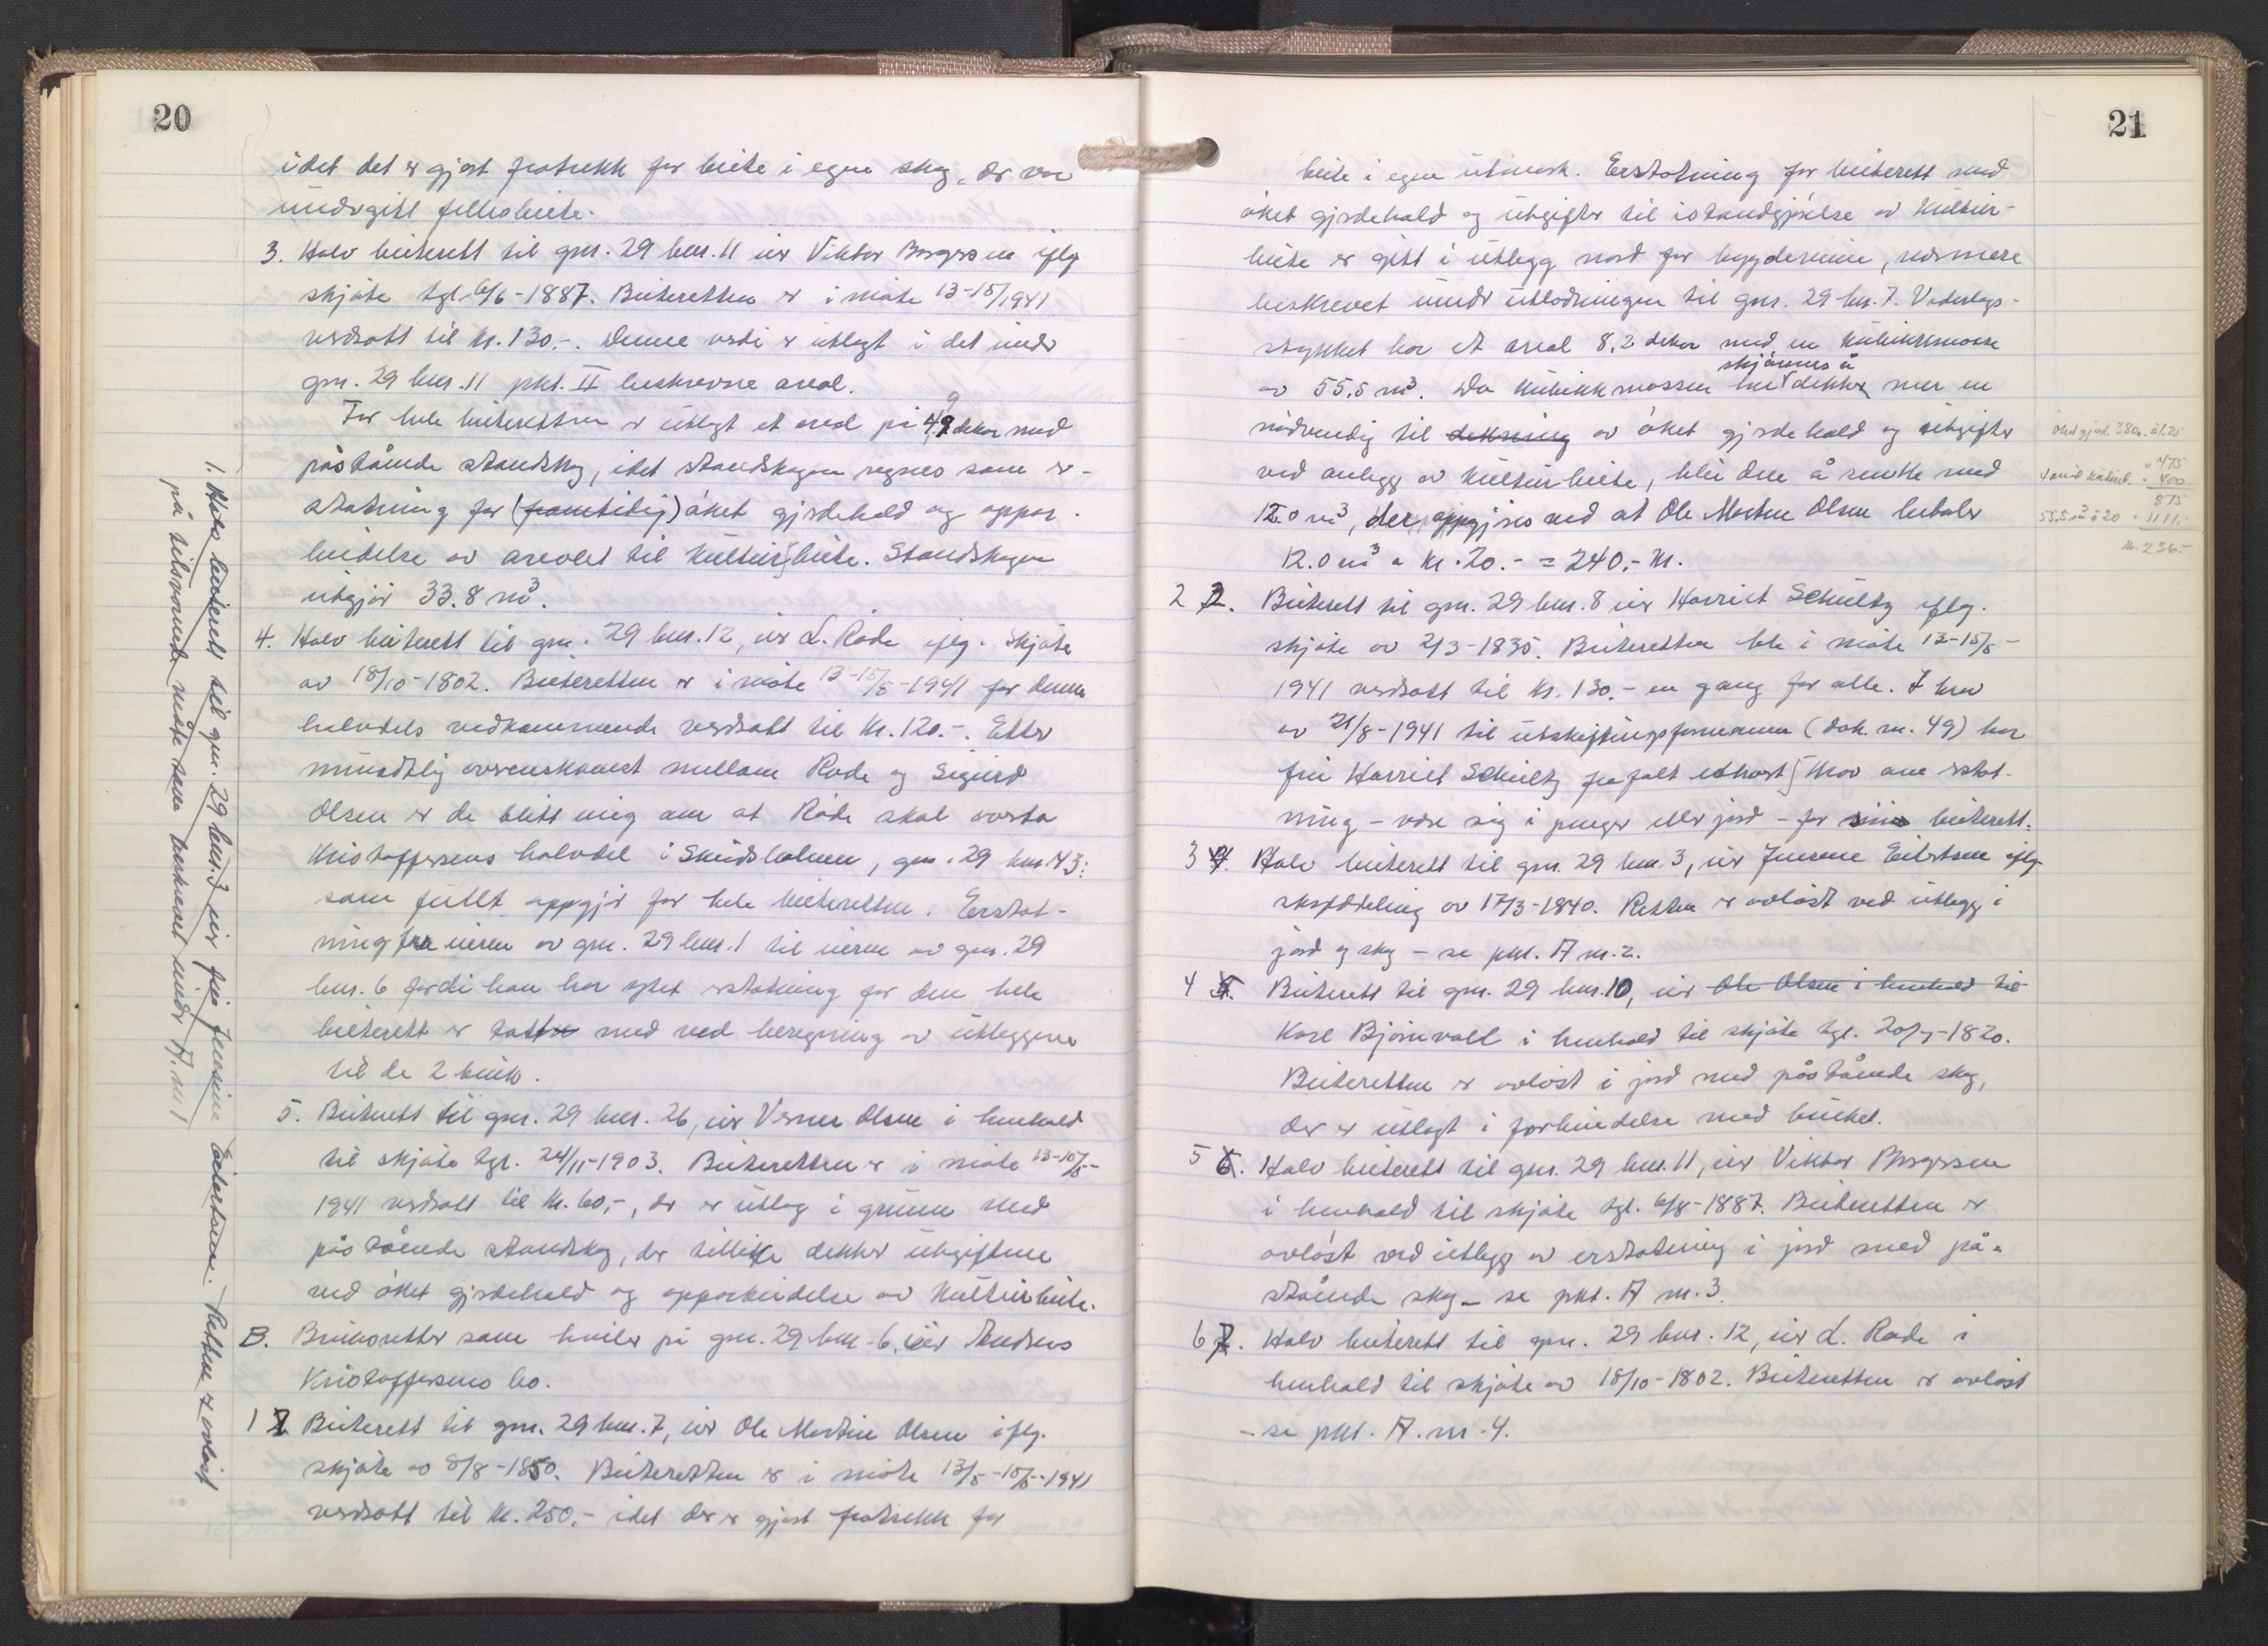 20
idet det er gjort fratrekk for beite i egen skog, der var
undergitt fellesbeite.
3. Halv beiterett til gnr. 29 bnr. 11 eier Viktor Borgersen iflg
skjøte tgl. 6/6-1887. Beiteretten er i møte 13-15/ 1941
verdsatt til kr. 130.-. Denne verdi er utlagt i det under
gnr. 29 bnr. 11 pkt. II beskrevne areal.
For hele beiteretten er utlagt et areal på 4,9 dekar med
påstående standskog, idet standskogen regnes som er-
statning for (framtidig) øket gjerdehold og oppar-
beidelse av arealet til kulturbeite. Standskogen
utgjør 33.8 m³.
4. Halv beiterett til gnr. 29 bnr. 12, eier L. Røde iflg. skjøte
av 18/10-1802. Beiteretten er i møte 13-15/5-1941 for denne
halvdels vedkommende verdsatt til kr. 120.-. Etter
mundtlig overenskomst mellom Røde og Sigurd
Olsen er de blitt enig om at Røde skal overta
Kristoffersens halvdel i Skudsholmen, gnr. 29 bnr. 43:
som fullt oppgjør for hele beiteretten. Erstat-
ning fra eieren av gnr. 29 bnr. 1 til eieren av gnr. 29
bnr. 6 fordi han har ytet erstatning for den hele
beiterett er tatt med ved beregning av utleggene
til de 2 bruk.
5. Beiterett til gnr. 29 bnr. 26, eier Verner Olsen i henhold
til skjøte tgl. 24/11-1903. Beiteretten er i møte 13-15/5-
1941 verdsatt til kr. 60,-, der er utlag i grunn med
påstående standskog, der tillike dekker utgiftene
ved øket gjerdehold og opparbeidelse av kulturbeite.
B. Bruksretter som hviler på gnr. 29 bnr. 6, eier Andreas
Kristoffersens bo.
1 Beiterett til gnr. 29 bnr. 7, eier Ole Martin Olsen iflg.
skjøte av 8/8-1850. Beiteretten er i møte 13/5-15/5-1941
verdsatt til kr. 250.- idet der er gjort fratrekk for
1. Halv beiterett til gnr. 29 bnr. 3 eier fru Jensine Eilertsen. Retten er avløst
på tilsvarende måte som beskrevet under A. nr 1
21
beite i egen utmark. Erstatning for beiterett med
øket gjerdehold og utgifter til istandgjørelse av kultur-
beite er gitt i utlegg nord for bygdeveien, nærmere
beskrevet under utlodningen til gnr. 29 bnr. 7. Vederlags-
stykket har et areal 8,2 dekar med en kubikkmasse
skjønnes å
av 55.5 m³. Da kubikkmassen dekke mer en
nødvendig til dekning av øket gjerdehold og utgifter
ved anlegg av kulturbeite, blir den å senke med
12.0 m³, der oppgjøres ved at Ole Martin Olsen betaler
12.0 m³ a kr. 20.- = 240.- kr.
øket gjerd. 380 m. á 1.25
" 475
4 mål kulturb. " 400
875
55.5 m³ á 20 - 1111.-
kr. 236.-
2 2. Beiterett til gnr. 29 bnr. 8 eier Harriet Schultz iflg.
skjøte av 2/3-1835. Beiteretten ble i møte 13-15/5-
1941 verdsatt til kr. 130.- en gang for alle. I brev
av 21/8-1941 til utskiftingsformannen (dok. nr. 49) har
fru Harriet Schultz frafalt ethvert krav om erstat-
ning - være sig i penger eller jord - for sin beiterett.
3 4. Halv beiterett til gnr. 29 bnr. 3, eier Jensine Eilertsen iflg
skyldeling av 17/3-1840. Retten er avløst ved utlegg i
jord og skog - se pkt. A nr. 2.
4 5. Beiterett til gnr. 29 bnr. 10, eier Ole Olsen i henhold til
Karl Bjørnvall i henhold til skjøte tgl. 20/7-1820.
Beiteretten er avløst i jord med påstående skog,
der er utlagt i forbindelse med bruket.
5 6. Halv beiterett til gnr. 29 bnr. 11, eier Viktor Borgersen
i henhold til skjøte tgl. 6/8-1887. Beiteretten er
avløst ved utlegg av erstatning i jord med på-
stående skog - se pkt. A nr. 3.
6 7. Halv beiterett til gnr. 29 bnr. 12, eier L. Røde i
henhold til skjøte av 18/10-1802. Beiteretten er avløst
- se pkt. A. nr. 4.